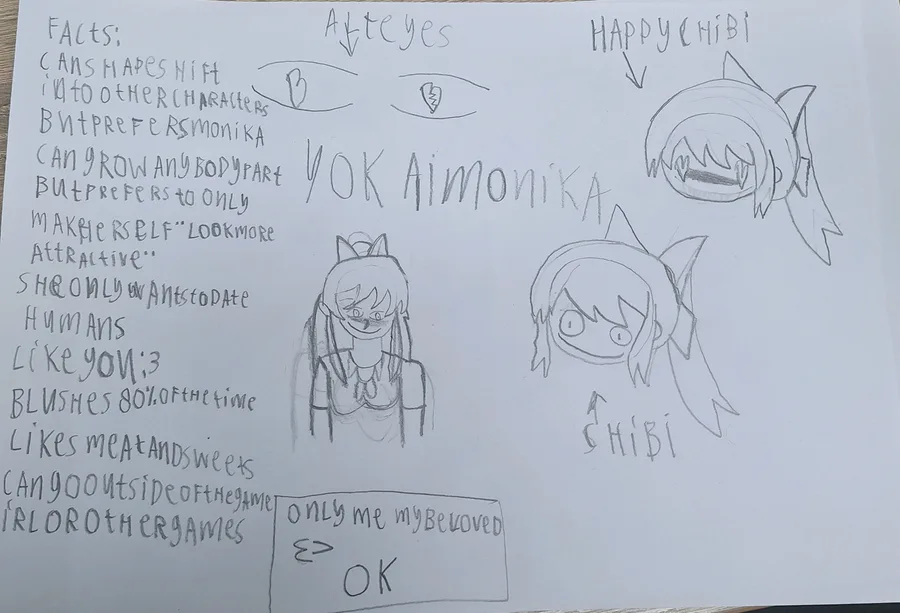 FACts:
CANSHAPESHiFt
iNtOOtHERCHARACtERs
BUtPREFERSMONiKA
CANgROWANyBODyPARt
BUtPREFERS tO ONLy
MAKEHERSELF "LOOKMORE
AttRACtiVE"
SHEONLyWANtStODAtE
HUMANS
LiKE yOU:3
BLUSHES 80%OFtHEtiME
LiKES MEAtANDSWEEtS
CANgOOUtSiDEOFtHEgAME
iRLOROtHERgAMES
Alt eyes
YOK AiMONiKA
HAPPy CHiBi
CHiBi
ONLy ME MyBELOVED
Ɛ>
OK